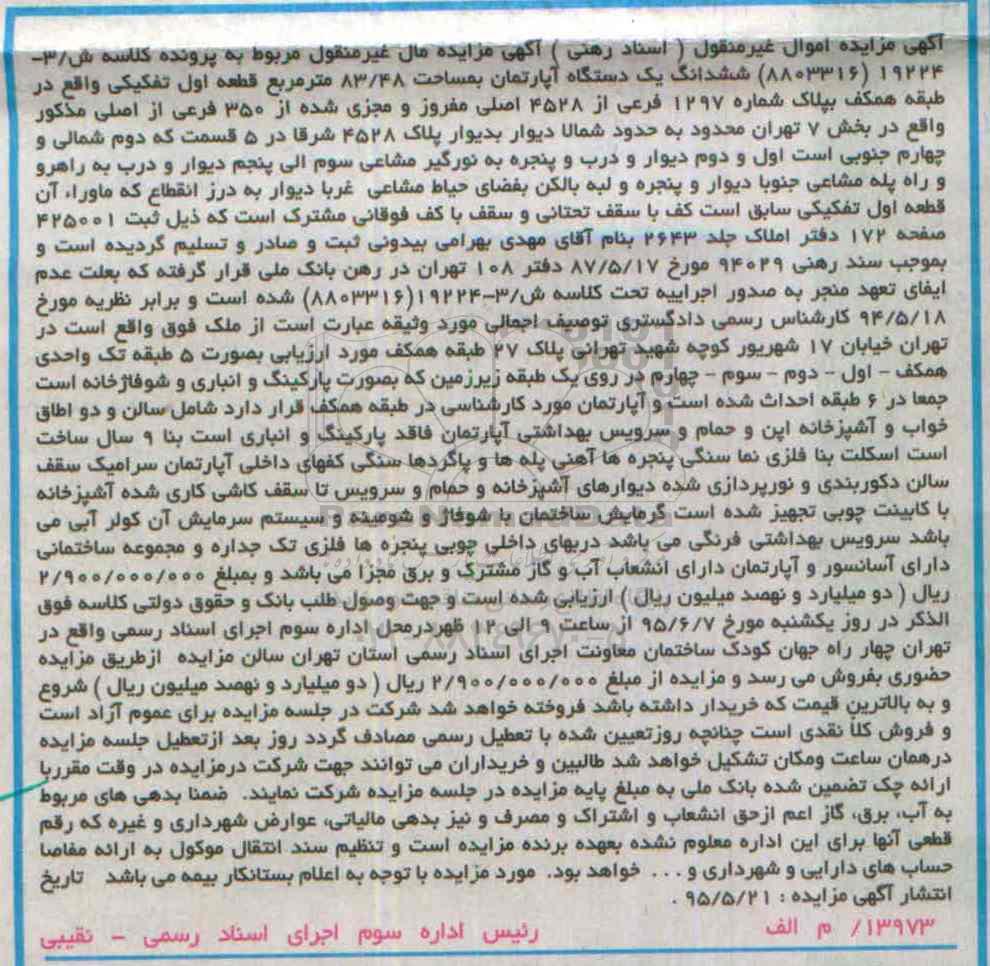 آگهی مزایده اموال غیرمنقول ( اسناد رهنی ) آگهی مزایده مال غیرمنقول مربوط به پرونده کلاسه ش/۳-
۱۹۲۲۴ (۸۸۰۳۳۱۶) ششدانگ یک دستگاه آپارتمان بمساحت ۸۳/۴۸ مترمربع قطعه اول تفکیکی واقع در
طبقه همکف بپلاک شماره ۱۲۹۷ فرعی از ۴۵۲۸ اصلی مفروز و مجزی شده از ۳۵۰ فرعی از اصلی مذکور
واقع در بخش ۷ تهران محدود به حدود شمالا دیوار بدیوار پلاک ۴۵۲۸ شرقا در ۵ قسمت که دوم شمالی و
چهارم جنوبی است اول و دوم دیوار و درب و پنجره به نورگیر مشاعی سوم الی پنجم دیوار و درب به راهرو
و راه پله مشاعی جنوبا دیوار و پنجره و لبه بالکن بفضای حیاط مشاعی غربا دیوار به درز انقطاع که ماوراء آن
قطعه اول تفکیکی سابق است کف با سقف تحتانی و سقف با کف فوقانی مشترک است که ذیل ثبت ۴۲۵۰۰۱
صفحه ۱۷۲ دفتر املاک جلد ۲۶۴۳ بنام آقای مهدی بهرامی بیدونی ثبت و صادر و تسلیم گردیده است و
بموجب سند رهنی ۹۴۰۲۹ مورخ ۸۷/۵/۱۷ دفتر ۱۰۸ تهران در رهن بانک ملی قرار گرفته که بعلت عدم
ایفای تعهد منجر به صدور اجراییه تحت کلاسه ش/۳-۱۹۲۲۴(۸۸۰۳۳۱۶) شده است و برابر نظریه مورخ
۹۴/۵/۱۸ کارشناس رسمی دادگستری توصیف اجمالی مورد وثیقه عبارت است از ملک فوق واقع است در
تهران خیابان ۱۷ شهریور کوچه شهید تهرانی پلاک ۲۷ طبقه همکف مورد ارزیابی بصورت ۵ طبقه تک واحدی
همکف - اول - دوم - سوم - چهارم در روی یک طبقه زیرزمین که بصورت پارکینگ و انباری و شوفاژخانه است
جمعا در ۶ طبقه احداث شده است و آپارتمان مورد کارشناسی در طبقه همکف قرار دارد شامل سالن و دو اطاق
خواب و آشپزخانه اپن و حمام و سرویس بهداشتی آپارتمان فاقد پارکینگ و انباری است بنا ۹ سال ساخت
است اسکلت بنا فلزی نما سنگی پنجره ها آهنی پله ها و پاگردها سنگی کفهای داخلی آپارتمان سرامیک سقف
سالن دکوربندی و نورپردازی شده دیوارهای آشپزخانه و حمام و سرویس تا سقف کاشی کاری شده آشپزخانه
با کابینت چوبی تجهیز شده است گرمایش ساختمان با شوفاژ و شومینه و سیستم سرمایش آن کولر آبی می
باشد سرویس بهداشتی فرنگی می باشد دربهای داخلی چوبی پنجره ها فلزی تک جداره و مجموعه ساختمانی
دارای آسانسور و آپارتمان دارای انشعاب آب و گاز مشترک و برق مجزا می باشد و بمبلغ ۲/۹۰۰/۰۰۰/۰۰۰
ریال ( دو میلیارد و نهصد میلیون ریال ) ارزیابی شده است و جهت وصول طلب بانک و حقوق دولتی کلاسه فوق
الذکر در روز یکشنبه مورخ ۹۵/۶/۷ از ساعت ۹ الی ۱۲ ظهردرمحل اداره سوم اجرای اسناد رسمی واقع در
تهران چهار راه جهان کودک ساختمان معاونت اجرای اسناد رسمی استان تهران سالن مزایده ازطریق مزایده
حضوری بفروش می رسد و مزایده از مبلغ ۲/۹۰۰/۰۰۰/۰۰۰ ریال ( دو میلیارد و نهصد میلیون ریال ) شروع
و به بالاترین قیمت که خریدار داشته باشد فروخته خواهد شد شرکت در جلسه مزایده برای عموم آزاد است
و فروش کلاً نقدی است چنانچه روزتعیین شده با تعطیل رسمی مصادف گردد روز بعد ازتعطیل جلسه مزایده
درهمان ساعت ومکان تشکیل خواهد شد طالبین و خریداران می توانند جهت شرکت درمزایده در وقت مقرربا
ارائه چک تضمین شده بانک ملی به مبلغ پایه مزایده در جلسه مزایده شرکت نمایند. ضمنا بدهی های مربوط
به آب، برق، گاز اعم ازحق انشعاب و اشتراک و مصرف و نیز بدهی مالیاتی، عوارض شهرداری و غیره که رقم
قطعی آنها برای این اداره معلوم نشده بعهده برنده مزایده است و تنظیم سند انتقال موکول به ارائه مفاصا
حساب های دارایی و شهرداری و ... خواهد بود. مورد مزایده با توجه به اعلام بستانکار بیمه می باشد تاریخ
انتشار آگهی مزایده : ۹۵/۵/۲۱ .
۱۳۹۷۳/ م الف رئیس اداره سوم اجرای اسناد رسمی - نقیبی